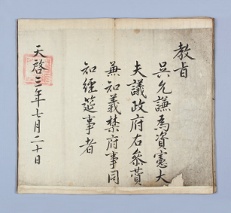 教旨
吳允謙爲資憲大
夫議政府右參贊
兼知義禁府事同
知經筵事者
天啓三年七月二十日